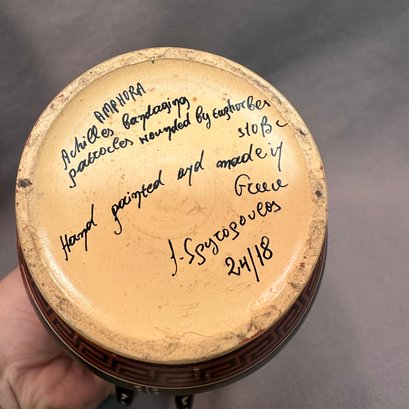 AMPHORA
Achilles bandaging
patrocles wounded by Euphorbes
510 BC
Hand painted and made in
Greece
J-Spyropoulos
24/18